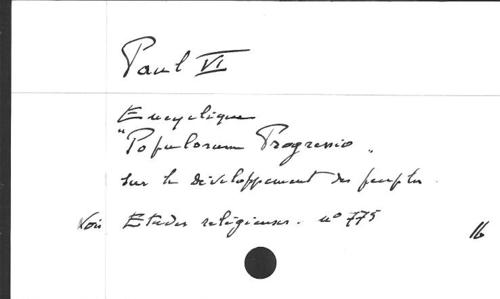 Paul VI
Encyclique
"Populorum Progressio"
sur le développement des peuples.
Voir Etudes religieuses. n° 775
16